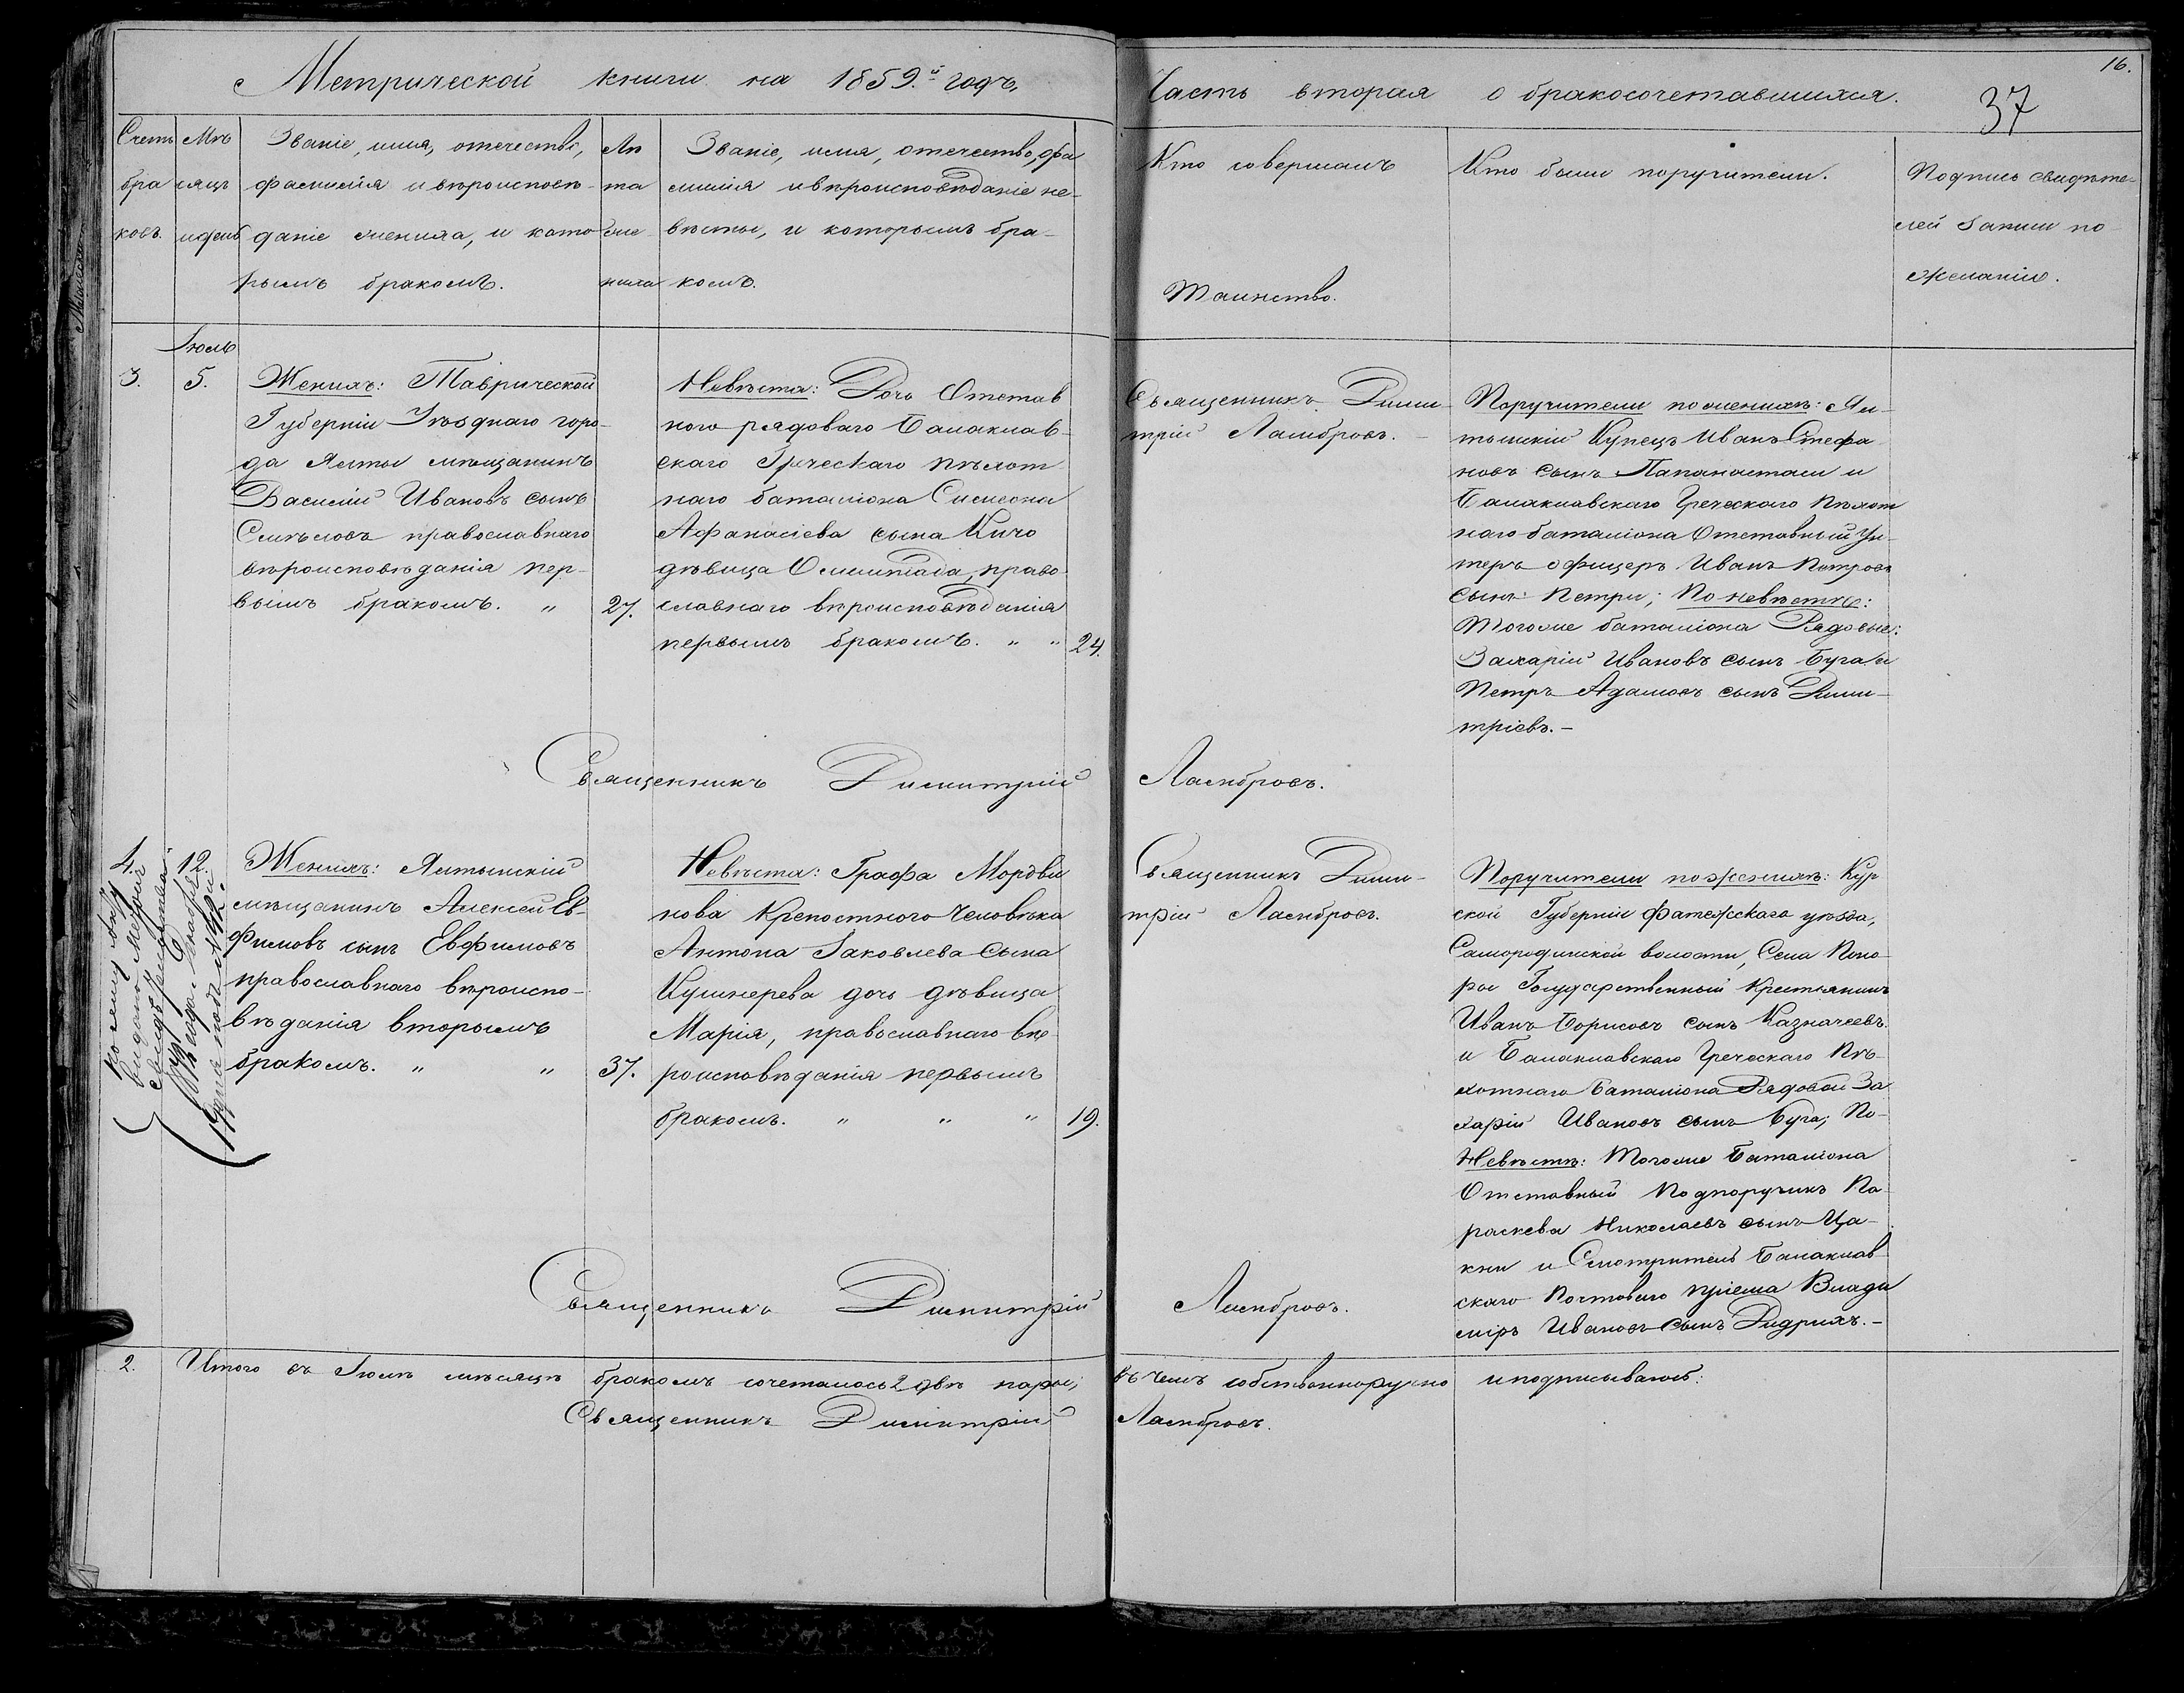 Метрической книги на 1859.й годъ,
Часть вторая о бракосочетавшихся.
16.
37
Счетъ
бра
ковъ.
Мѣ
сяцъ
и день
Званіе, имя, отечество,
фамилія и вѣроисповѣ-
даніе жениха, и кото-
рымъ бракомъ.
Лѣ
та
же-
ниха
Званіе, имя, отечество, фа
милія и вѣроисповѣданіе не-
вѣсты, и которымъ бра-
комъ.
Кто совершалъ
Таинство.
Кто были поручители.
Подпись свидѣте-
лей записи по
желанію.
Іюль
3.
5.
Женихъ: Таврической
Губерніи Уѣзднаго горо-
да Ялты мѣщанинъ
Василій Ивановъ сынъ
Смѣловъ православнаго
вѣроисповѣданія пер-
вымъ бракомъ. "
27.
Невѣста: Дочь Отстав
ного рядоваго Балаклав-
скаго Греческаго пѣхот
наго баталіона Симеона
Афанасіева сына Кичо
дѣвица Олимпіада, право
славнаго вѣроисповѣданія
первымъ бракомъ. " "
24.
Священникъ Дими-
трій Ламбровъ.
Поручители по женихѣ: Ял-
тынскій Купецъ Иванъ Стефа
новъ сынъ Папанастаси и
Балаклавскаго Греческаго Пѣхот
наго баталіона Отставный Ун-
теръ офицеръ Иванъ Петровъ
сынъ Петри; По невѣстѣ:
Того же баталіона Рядовые:
Захарій Ивановъ сынъ Буга и
Петръ Адамовъ сынъ Дими-
тріевъ.-
Священникъ Димитрій Ламбровъ.
4.
12.
По сему акту
выдано
свидѣтельство
года
под №
Женихъ: Ялтынскій
мѣщанинъ Алексей Ев-
фимовъ сынъ Евфимовъ
православнаго вѣроиспо-
вѣданія вторымъ
бракомъ. " "
37.
Невѣста: Графа Мордви
нова Крепостного Человѣка
Антона Іаковлева Сына
Кушнерева дочь дѣвица
Марія, православнаго вѣ-
роисповѣданія первымъ
бракомъ. " " "
19.
Священникъ Дими-
трій Ламбровъ.
Поручители по женихѣ: Кур
ской Губерніи Фатежскаго уѣзда,
Самородинской волости, Села Поно-
ры Государственный Крестьянинъ
Иванъ Борисовъ сынъ Казначеевъ
и Балаклавскаго Греческаго Пѣ-
хотнаго Баталіона Рядовой За
харій Ивановъ сынъ Буга; По-
Невѣстѣ: Того же Баталіона
Отставный Подпоручикъ Па-
раскева Николаевъ сынъ Ца-
кни и Смотритель Балаклав
скаго Почтоваго пріема Влади
міръ Ивановъ сынъ Дидрихъ.-
Священникъ Димитрій Ламбровъ.
2. Итого въ Іюлѣ мѣсяцѣ бракомъ сочеталось 2 двѣ пары; въ чемъ собственноручно и подписываюсь:
Священникъ Димитрій Ламбровъ.